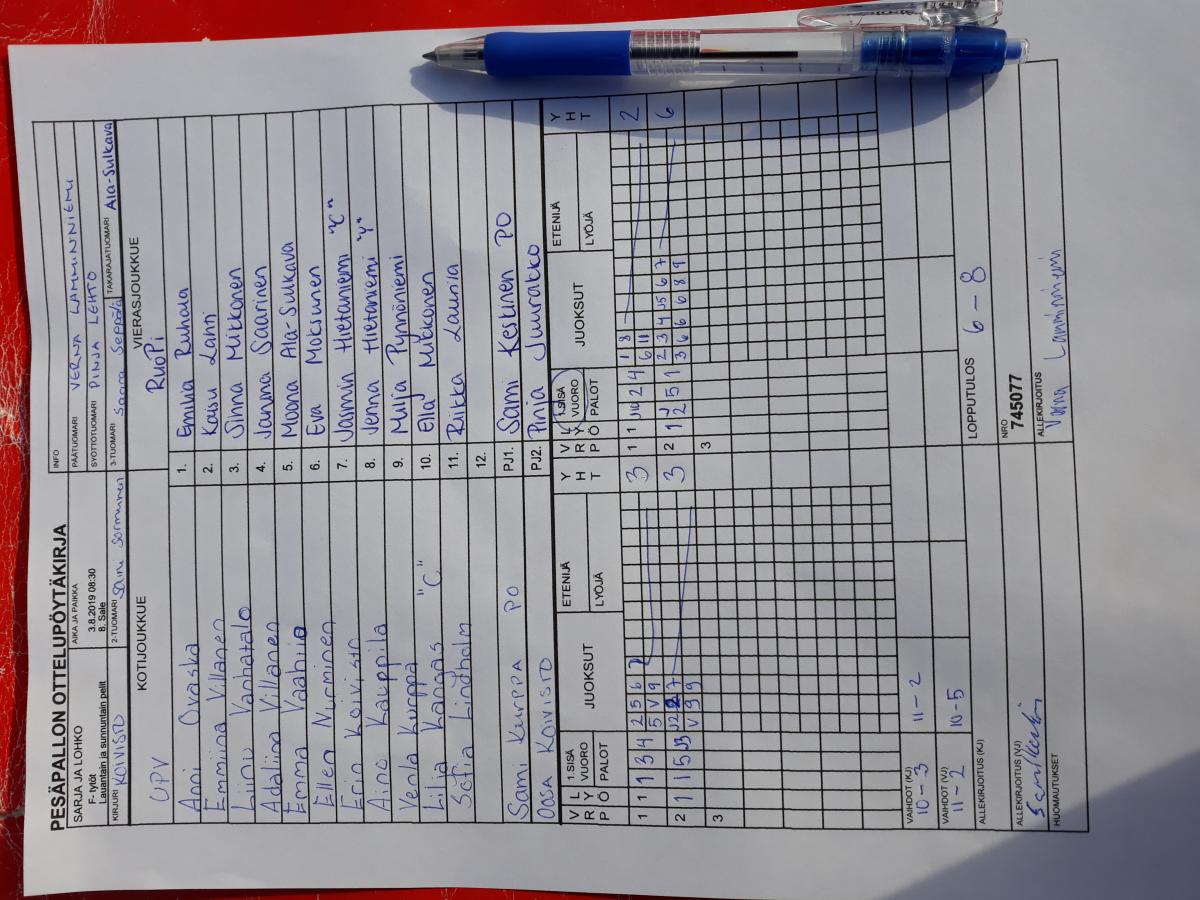 PESÄPALLON OTTELUPÖYTÄKIRJA
SARJA JA LOHKO
F- tytöt
Lauantain ja sunnuntain pelit
AIKA JA PAIKKA
3.8.2019 08:30
8. Sale
INFO
PÄÄTUOMARI VERNA LAMMINNIEMI
SYÖTTÖTUOMARI PINJA LEHTO
KIRJURI KOIVISTO
2-TUOMARI Saini Sormunen
3-TUOMARI Saara Seppälä
TAKARAJATUOMARI Ala-Sulkava
KOTIJOUKKUE
UPV
VIERASJOUKKUE
RuoPi
Anni Ovaska 1. Emilia Ruhala
Emmiina Villanen 2. Kaisu Lahti
Linnu Vanhatalo 3. Sinna Mikkonen
Adaliina Villanen 4. Janina Saarinen
Emma Vaahtio 5. Moona Ala-Sulkava
Ellen Nurminen 6. Eva Moksunen
Erin Koivisto 7. Jasmin Hietaniemi "C"
Aino Kauppila 8. Jenna Hietaniemi "V"
Venla Kurppa 9. Milja Pynnöniemi
Lilja Kangas "C" 10. Ella Mikkonen
Sofia Lindholm 11. Riikka Launila
12.
Sami Kurppa PO PJ1. Sami Keskinen PO
Oosa KOIVISTO PJ2. Pinja Juurakko
V R P L Y Ö 1.SISÄ VUORO PALOT JUOKSUT ETENIJÄ LYÖJÄ Y H T
V R P L Y Ö 1.SISÄ VUORO PALOT JUOKSUT ETENIJÄ LYÖJÄ Y H T
1 1 1 3 4 2 5 6 3
5 V 9
1 1 J10 2 4 1 8 2
6 11
2 1 1 5 7 3
V 9 9
2 1 2 5 1 2 3 4 J5 6 7 6
3 6 6 6 8 9
3
3
VAIHDOT (KJ)
10-3 11-2
VAIHDOT (VJ)
11-2 10-5
LOPPUTULOS 6 - 8
ALLEKIRJOITUS (KJ)
NRO
745077
ALLEKIRJOITUS (VJ)
ALLEKIRJOITUS
HUOMAUTUKSET